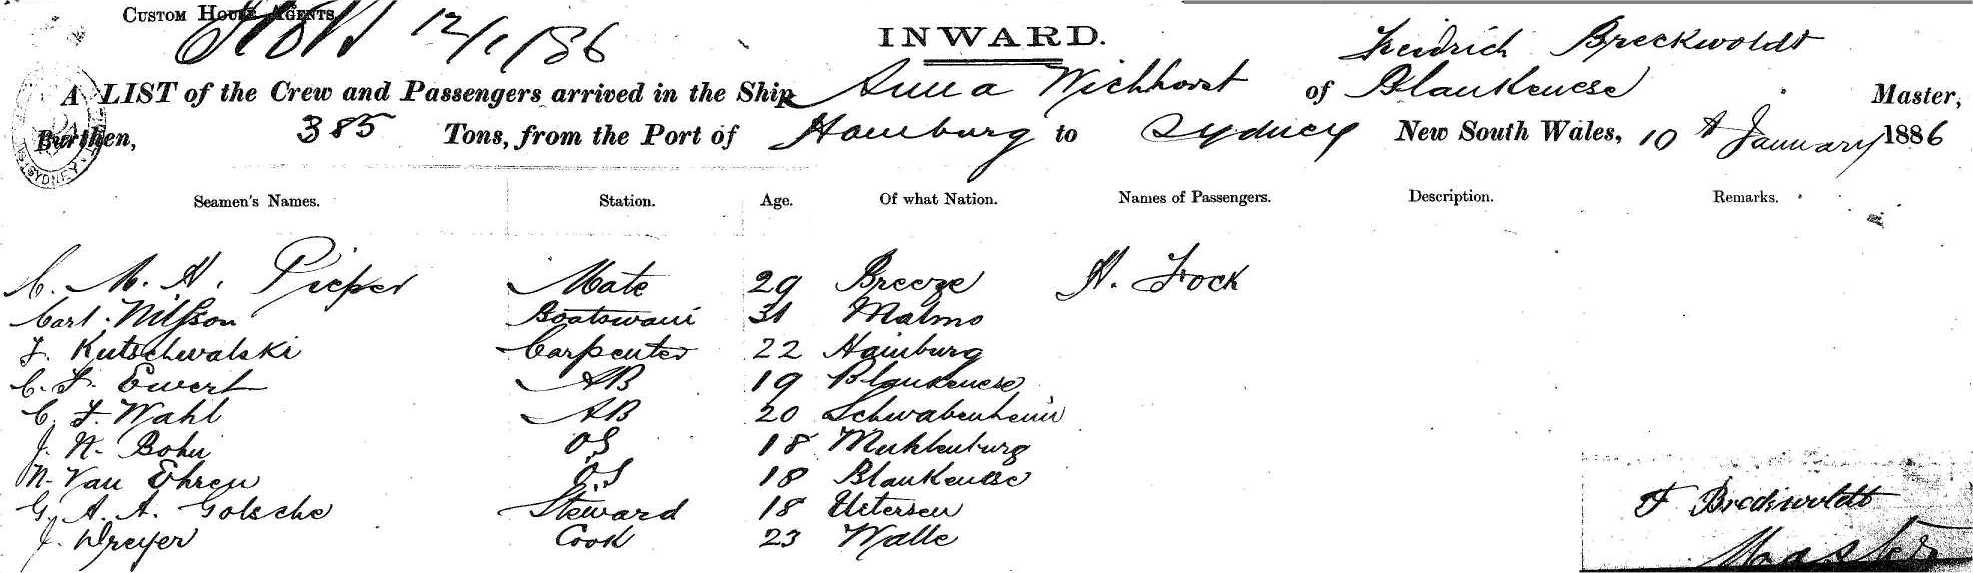 CUSTOM HOUSE AGENTS.
12/1/86
INWARD.
Freidrich Breckwoldt
A LIST of the Crew and Passengers arrived in the Ship Anna Wichhorst of Blankenese Master,
Burthen, 385 Tons, from the Port of Hamburg to Sydney New South Wales, 10th January 1886
Seamen's Names. Station. Age. Of what Nation. Names of Passengers. Description. Remarks.
C. M. H. Pieper Mate 29 Breeze H. Fock
Carl Nilsson Boatswain 31 Malmo
F. Kutschwalski Carpenter 22 Hamburg
C. F. Ewert AB 19 Blankenese
C. F. Wahl AB 20 Schwabenheim
J. N. Bohn O.S 18 Muhlenburg
N. Van Ehren O.S 18 Blankenese
G. A. A. Golsche Steward 18 Uetersen
J. Dreyer Cook 23 Walle
F Breckwoldt
Master
SYDNEY